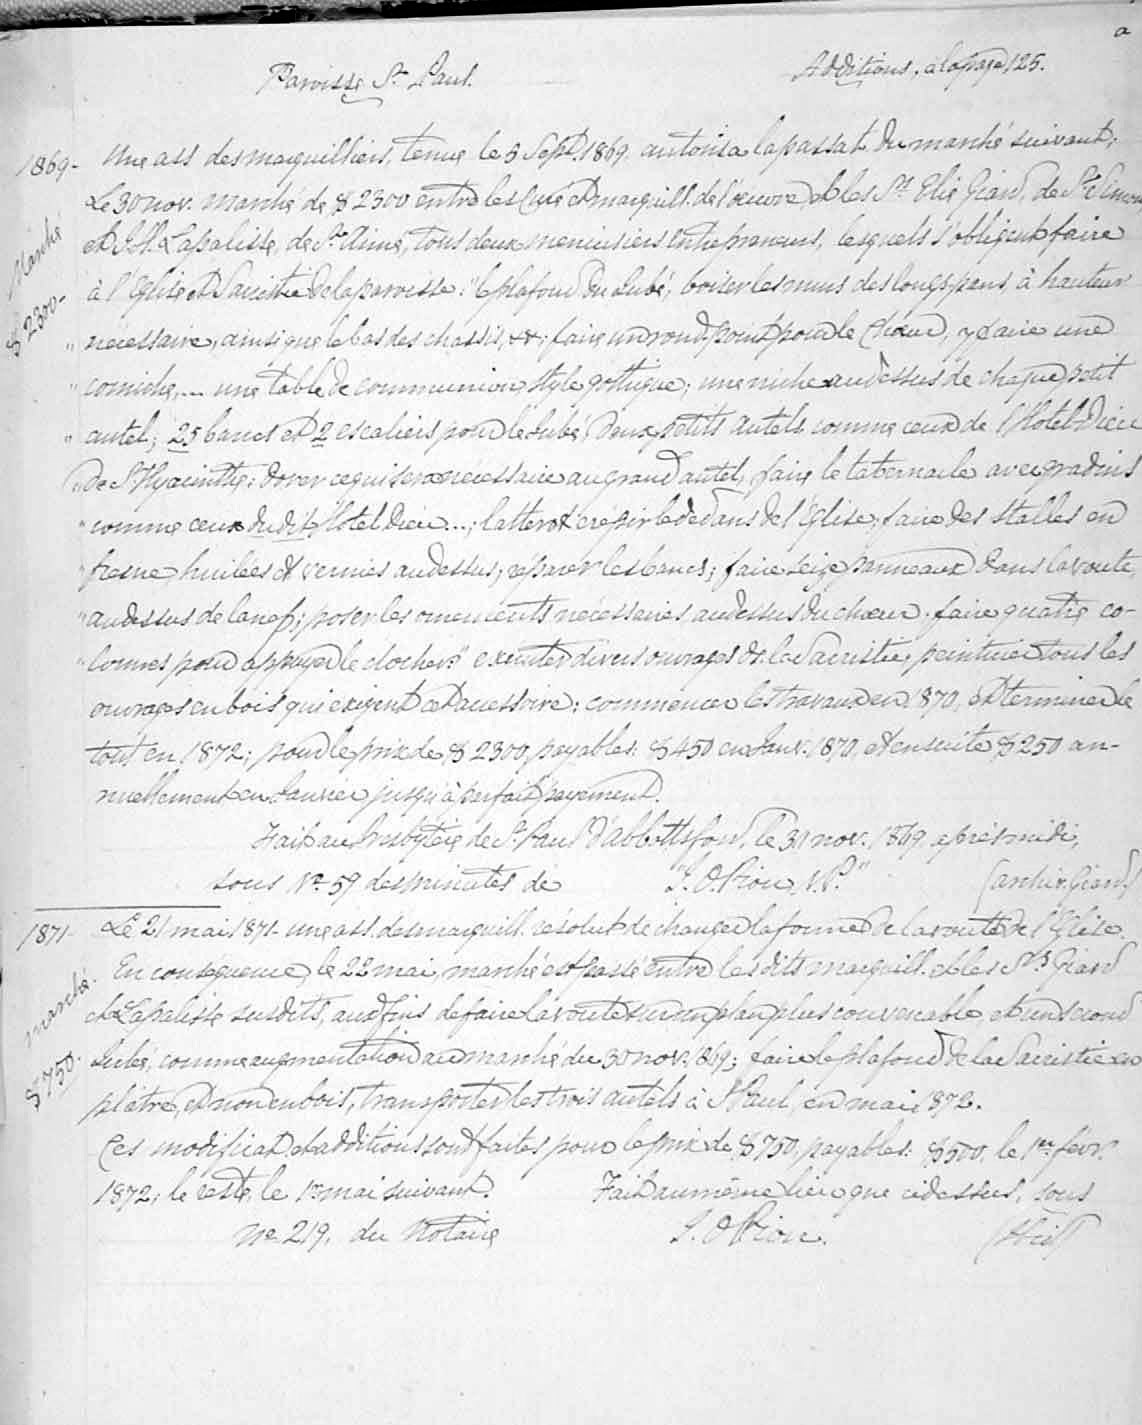 a
Paroisse St Paul. Additions, à la page 125.
1869- Une ass. des marguilliers, tenue le 5 Sept. 1869, autorisa la passat. du marché suivant:
Marché $2300- Le 30 nov. marché de $2300 entre les Curé et marguill. de l'œuvre, et les Srs Elie Giard, de St Simon
et Lapalisse, de St Aimé, tous deux menuisiers entrepreneurs, lesquels s'obligent faire
à l'Eglise et Sacristie de la paroisse: "le plafond du Jubé, boiser les murs des longs pans, à hauteur
" nécessaire, ainsi que le bas des chassis, &; faire un rond-point pour le Chœur, y faire une
" corniche,... une table de communion style gothique; une niche au dessus de chaque petit
" autel; 25 bancs et 2 escaliers pour le Jubé, deux petits autels comme ceux de l'Hotel Dieu
" de St Hyacinthe; dorer ce qui sera nécessaire au grand autel, faire le tabernacle avec gradins
" comme ceux du dit Hotel Dieu...; latter et crépir le dedans de l'Eglise; faire des stalles en
" fresne huilées et vernies au dessus; réparer les bancs; faire seize panneaux dans la voute,
" au dessus de la nef; poser les ornements nécessaires au dessus du chœur. faire quatre co-
" lonnes pour appuyer le clocher." exécuter divers ouvrages ds. la Sacristie, peinturer tous les
ouvrages en bois qui exigent cet accessoire; commencer les travaux en 1870, et terminer le
tout en 1872; pour le prix de $2300, payables: $450 en Janv. 1870, et ensuite $250 an-
nuellement en Janvier jusqu'à parfait payement.
Fait au Presbytère de St Paul d'Abbottsford, le 30 nov. 1869 après midi,
sous No 59 des minutes de "J. O. Pion, N.P." (archiv. Giard)
1871- Le 21 mai 1871- une ass. des marguill. résolut de changer la forme de la voute de l'Eglise.
marché. $750. En conséquence, le 22 mai, marché est passé entre les dits marguill. et les Srs Giard
et Lapalisse susdits, aux fins de faire la voute sur un plan plus convenable, et un second
Jubé, comme augmentation au marché du 30 nov. 1869; faire le plafond de la Sacristie en
plâtre, et non en bois, transporter les trois autels à St Paul, en mai 1872.
Ces modificat. et additions sont faites pour le prix de $750, payables: $500, le 1er févr.
1872; le reste, le 1er mai suivant. Fait au même lieu que ci dessus, sous
No 219. du Notaire J. O. Pion. (Ibid)